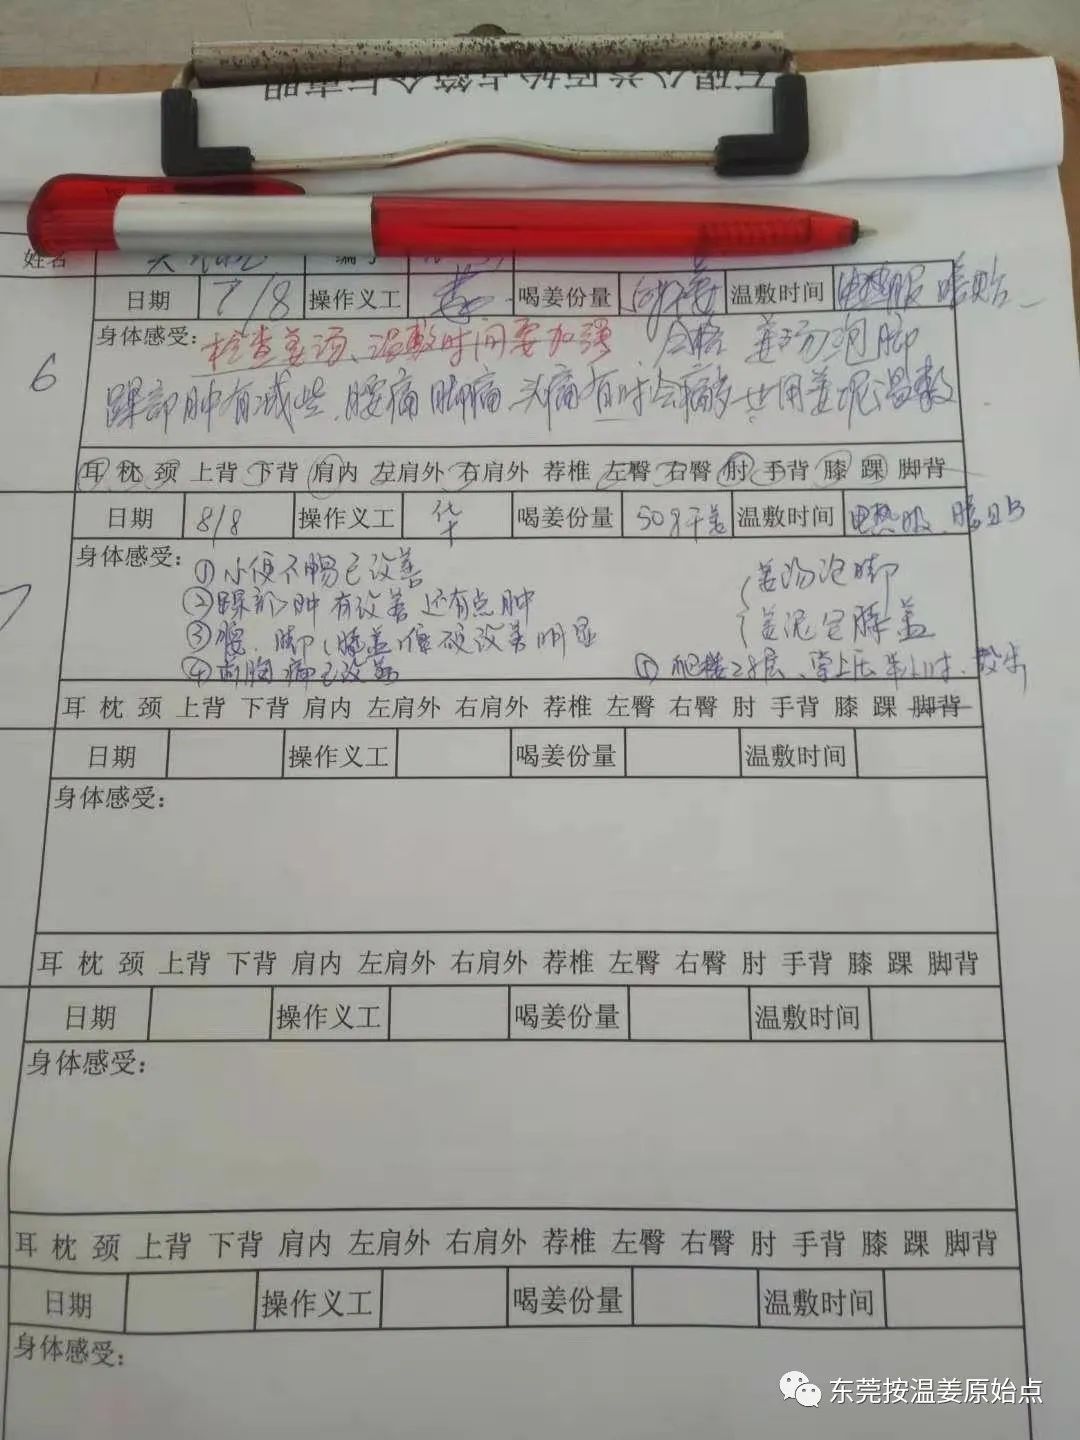 石碣公益原始点简介与声明
姓名 编号
日期 7/8 操作义工 喝姜份量 温敷时间 电热服
身体感受: 检查姜汤、温敷时间要加强 姜汤泡脚
6
踝部肿有减些 腰痛 脚痛 头痛有时会痛 用姜泥温敷
耳 枕 颈 上背 下背 肩内 左肩外 右肩外 荐椎 左臀 右臀 肘 手背 膝 踝 脚背
日期 8/8 操作义工 华 喝姜份量 50g干姜 温敷时间 电热服
身体感受: ①小便不畅已改善 姜汤泡脚
7
②踝部肿有改善 还有点肿
③腰、脚(膝盖)僵硬改善明显 姜泥包膝盖
④前胸痛已改善 ⑤爬楼28层、掌上压 散步
耳 枕 颈 上背 下背 肩内 左肩外 右肩外 荐椎 左臀 右臀 肘 手背 膝 踝 脚背
日期 操作义工 喝姜份量 温敷时间
身体感受:
耳 枕 颈 上背 下背 肩内 左肩外 右肩外 荐椎 左臀 右臀 肘 手背 膝 踝 脚背
日期 操作义工 喝姜份量 温敷时间
身体感受:
耳 枕 颈 上背 下背 肩内 左肩外 右肩外 荐椎 左臀 右臀 肘 手背 膝 踝 脚背
日期 操作义工 喝姜份量 温敷时间
身体感受:
东莞按温姜原始点